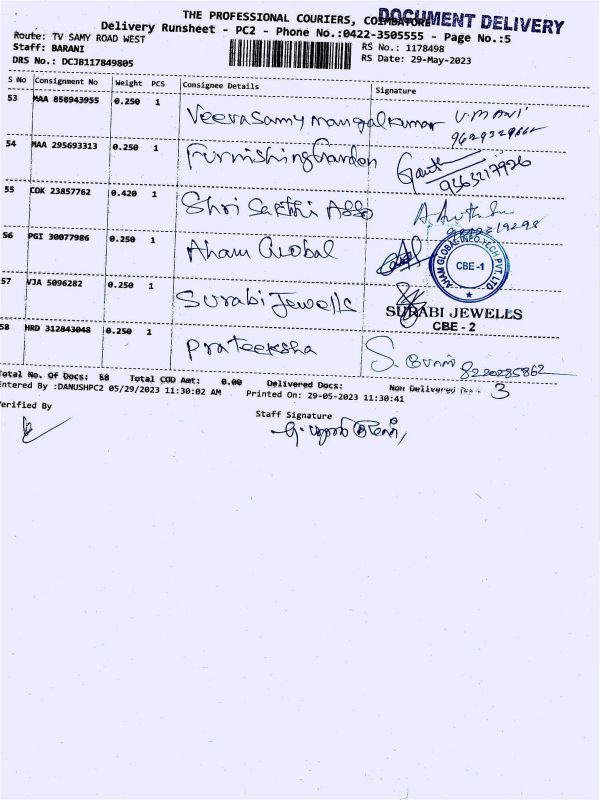 THE PROFESSIONAL COURIERS, COIMBATORE
DOCUMENT DELIVERY
Delivery Runsheet - PC2 - Phone No.:0422-3505555 - Page No.:5
Route: TV SAMY ROAD WEST
RS No.: 1178498
Staff: BARANI
RS Date: 29-May-2023
DRS No.: DCJB117849805
S No Consignment No Weight PCS Consignee Details Signature
53 MAA 858943955 0.250 1 Veerasamy mangalkumar UMANI
54 MAA 295693313 0.250 1 Furnishing Garden
9363217926
55 CDK 23857762 0.420 1 Shri Sakthi Asso
56 PGI 30077986 0.250 1 Aham Global
AHAM GLOBAL GEO-TECH PVT. LTD
CBE -1
57 VJA 5096282 0.250 1 Surabi Jewells
SURABI JEWELLS
CBE - 2
58 HRD 312843048 0.250 1 Prateeksha
8220285862
Total No. Of Docs: 58 Total COD Amt: 0.00 Delivered Docs: Non Delivered Docs: 3
Entered By :DANUSHPC2 05/29/2023 11:30:02 AM Printed On: 29-05-2023 11:30:41
Verified By
Staff Signature